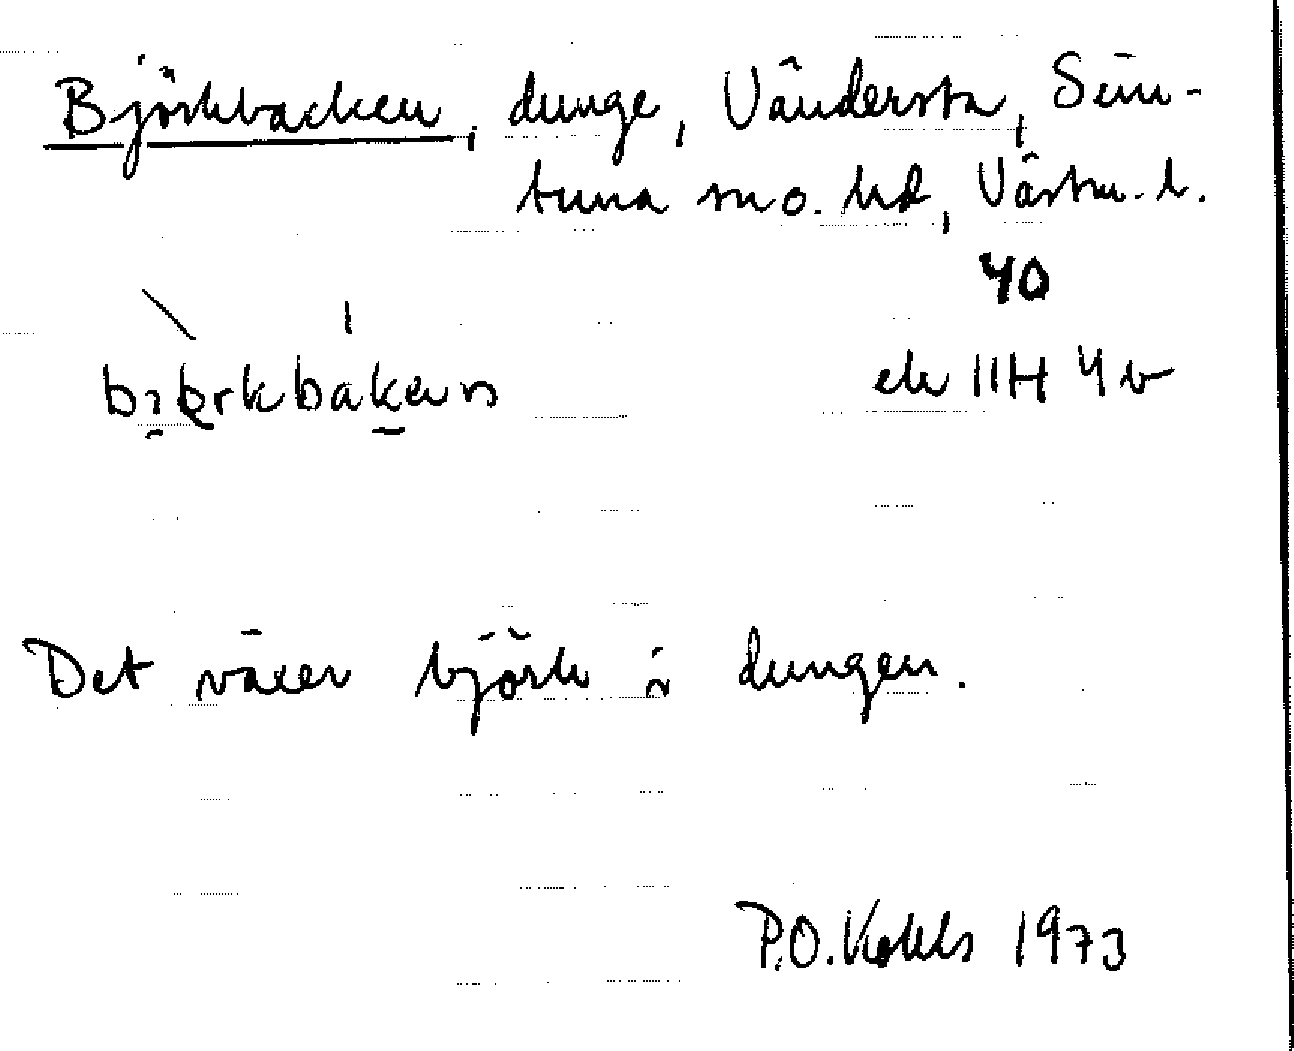 Björkbacken, dunge, Vändersta, Sim-
tuna sn o. hd, Västm. l.
40
ek 11H 4b
Det växer björk i dungen.
P.O. Kohls 1973